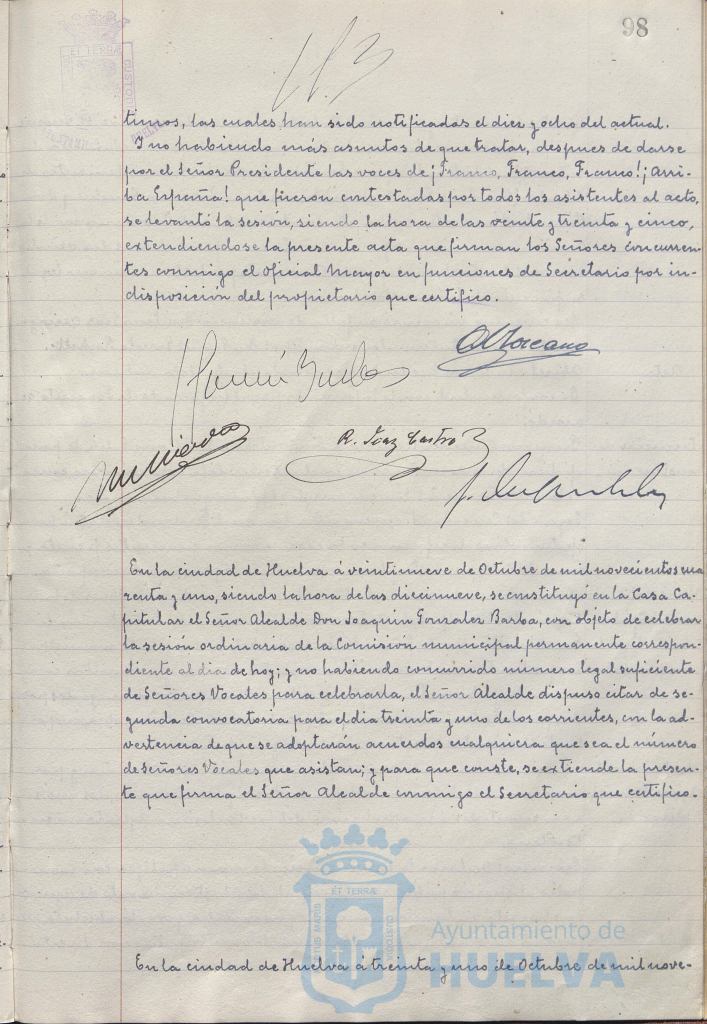 98
ET TERRÆ
CUSTODIA
timos, las cuales han sido notificadas el diez y ocho del actual.
Y no habiendo más asuntos de que tratar, despues de darse
por el Señor Presidente las voces de ¡Franco, Franco, Franco!; ¡Arri-
ba España! que fueron contestadas por todos los asistentes al acto,
se levantó la sesión, siendo la hora de las veinte y treinta y cinco,
extendiendose la presente acta que firman los Señores concurren-
tes conmigo el Oficial Mayor en funciones de Secretario por in-
disposición del propietario que certifico.
R. Diaz Castro
En la ciudad de Huelva á veintinueve de Octubre de mil novecientos cua
renta y uno, siendo la hora de las diecinueve, se constituyó en la Casa Ca-
pitular el Señor Alcalde Don Joaquin Gonzalez Barba, con objeto de celebrar
la sesión ordinaria de la Comisión municipal permanente correspon-
diente al dia de hoy; y no habiendo concurrido número legal suficiente
de Señores Vocales para celebrarla, el Señor Alcalde dispuso citar de se-
gunda convocatoria para el dia treinta y uno de los corrientes, con la ad-
vertencia de que se adoptarán acuerdos cualquiera que sea el número
de Señores Vocales que asistan; y para que conste, se extiende la presen-
te que firma el Señor Alcalde conmigo el Secretario que certifico.
ET TERRÆ
PORTUS MARIS
CUSTODIA
Ayuntamiento de
HUELVA
En la ciudad de Huelva á treinta y uno de Octubre de mil nove-